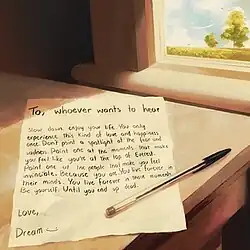 To, whoever wants to hear
Slow down. enjoy your life. You only
experience this kind of love and happiness
once. Don't point a spotlight at the lows and
sadness. Point one at the moments that make
you feel like you're at the top of Everest.
Point one at the people that make you feel
invincible. Because you are. You live forever in
their minds. You live forever in those moments.
Be yourself. Until you end up dead.
Love,
Dream